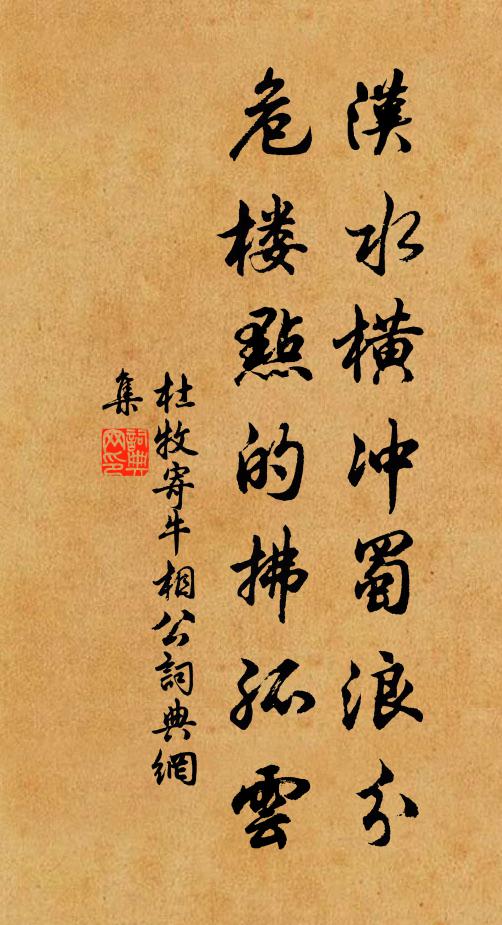 漢水橫冲蜀浪分
危楼點的拂孤雲
杜牧寄牛相公詞典網
集
詞典網印